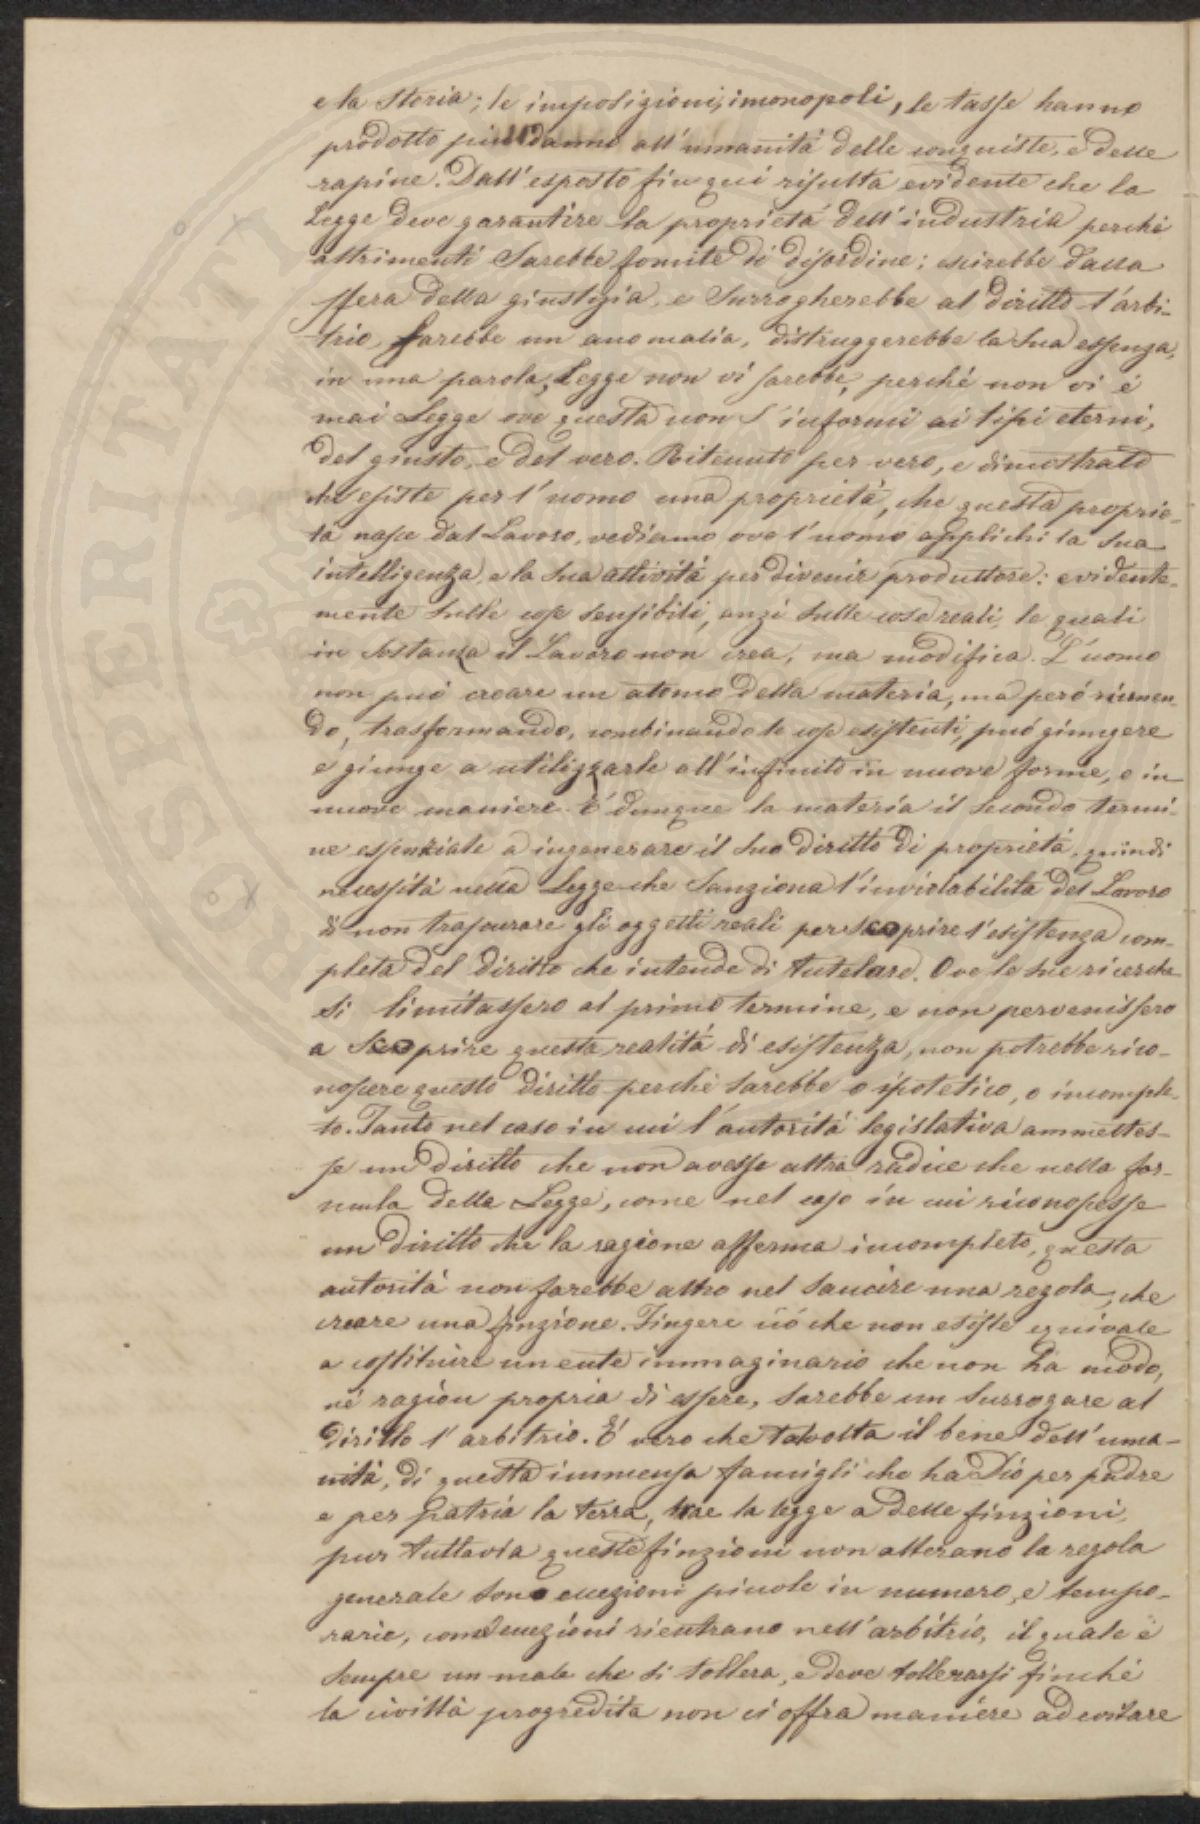 e la storia; le imposizioni, i monopoli, le tasse hanno
prodotto più danni all'umanità delle conquiste, e delle
rapine. Dall'esposto fin qui risulta evidente che la
Legge deve garantire la proprietà dell'industria perchè
altrimenti sarebbe fomite di disordine; escirebbe dalla
sfera della giustizia, e surrogherebbe al diritto l'arbi-
trio, sarebbe un anomalia, distruggerebbe la sua essenza,
in una parola, Legge non vi sarebbe, perchè non vi è
mai Legge ove questa non s'informi ai tipi eterni,
del giusto, e del vero. Ritenuto per vero, e dimostrato
che esiste per l'uomo una proprietà, che questa proprie-
tà nasce dal Lavoro, vediamo ove l'uomo applichi la sua
intelligenza, e la sua attività per divenir produttore: evidente-
mente sulle cose sensibili, anzi sulle cose reali, le quali
in sostanza il Lavoro non crea, ma modifica. L'uomo
non può creare un atomo della materia, ma però riunen-
do, trasformando, combinando le cose esistenti, può giungere
e giunge a utilizzarle all'infinito in nuove forme, e in
nuove maniere. È dunque la materia il secondo termi-
ne essenziale a ingenerare il suo diritto di proprietà, quindi
necessità nella Legge che sanziona l'inviolabilità del Lavoro
di non trascurare gli oggetti reali per scoprire l'esistenza com-
pleta del diritto che intende di tutelare. Ove le sue ricerche
si limitassero al primo termine, e non pervenissero
a scoprire questa realità di esistenza, non potrebbe rico-
noscere questo diritto perchè sarebbe o ipotetico, o incomple-
to. Tanto nel caso in cui l'autorità legislativa ammettes-
se un diritto che non avesse altra radice che nella for-
mula della Legge, come nel caso in cui riconoscesse
un diritto che la ragione afferma incompleto, questa
autorità non farebbe altro nel sancire una regola, che
creare una finzione. Fingere ciò che non esiste equivale
a costituire un ente immaginario che non ha modo,
nè ragion propria di essere, sarebbe un surrogare al
diritto l'arbitrio. È vero che talvolta il bene dell'uma-
nità, di questa immensa famigli che ha Dio per padre
e per patria la terra, trae la legge a delle finzioni,
pur tuttavia queste finzioni non alterano la regola
generale sono eccezioni piccole in numero, e tempo-
rarie, come eccezioni rientrano nell'arbitrio, il quale è
sempre un male che si tollera, e deve tollerarsi finchè
la civiltà progredita non ci offra maniere ad evitare
PROSPERITATI